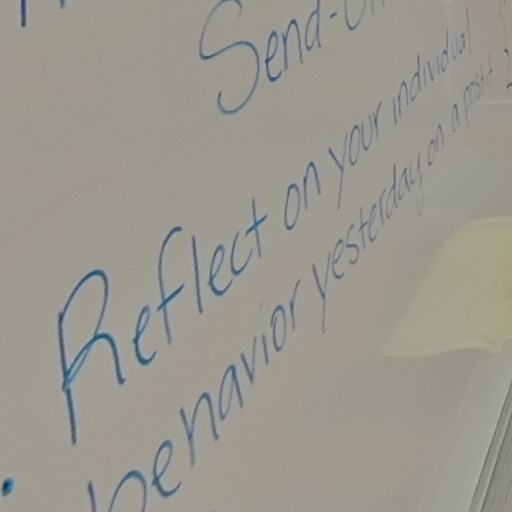 Send-
Reflect on your individual
behavior yesterday on a post it